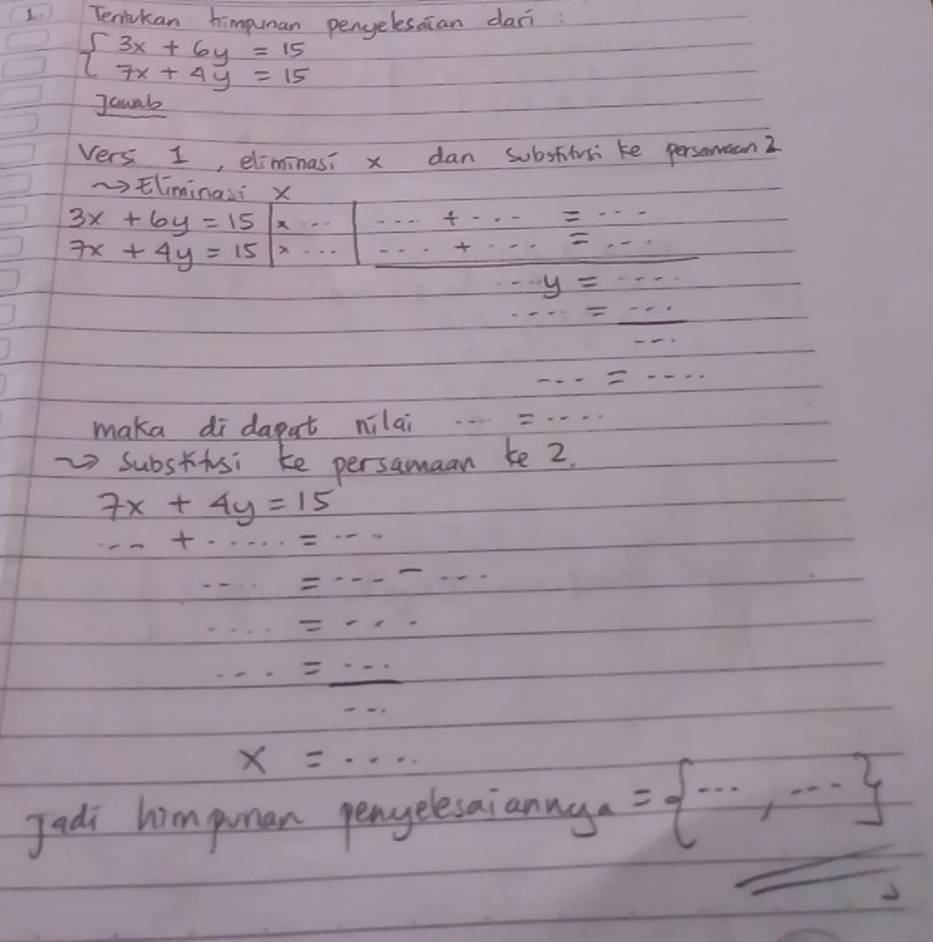 1. Tentukan himpunan penyelesaian dari :
{ 3x + 6y = 15
7x + 4y = 15
Jawab
Versi 1, eliminasi x dan substitusi ke persamaan 2
~> Eliminasi x
3x + 6y = 15 | x ... | ... + ... = ...
7x + 4y = 15 | x ... | ... + ... = ...
... y = ....
.... = ...
...
... = ....
maka di dapat nilai ... = ....
~> Substitusi ke persamaan ke 2.
7x + 4y = 15
... + ..... = ...
.... = ... - ...
.... = ...
.... = ...
...
x = ....
Jadi himpunan penyelesaiannya = {..., ...}